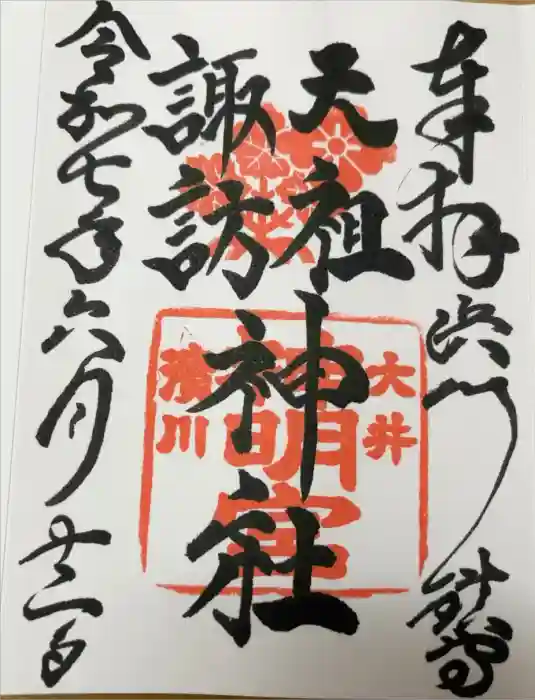 奉拝 浜川
天祖
諏訪
神社
令和七年六月廿二日
大井
神明宮
濱川